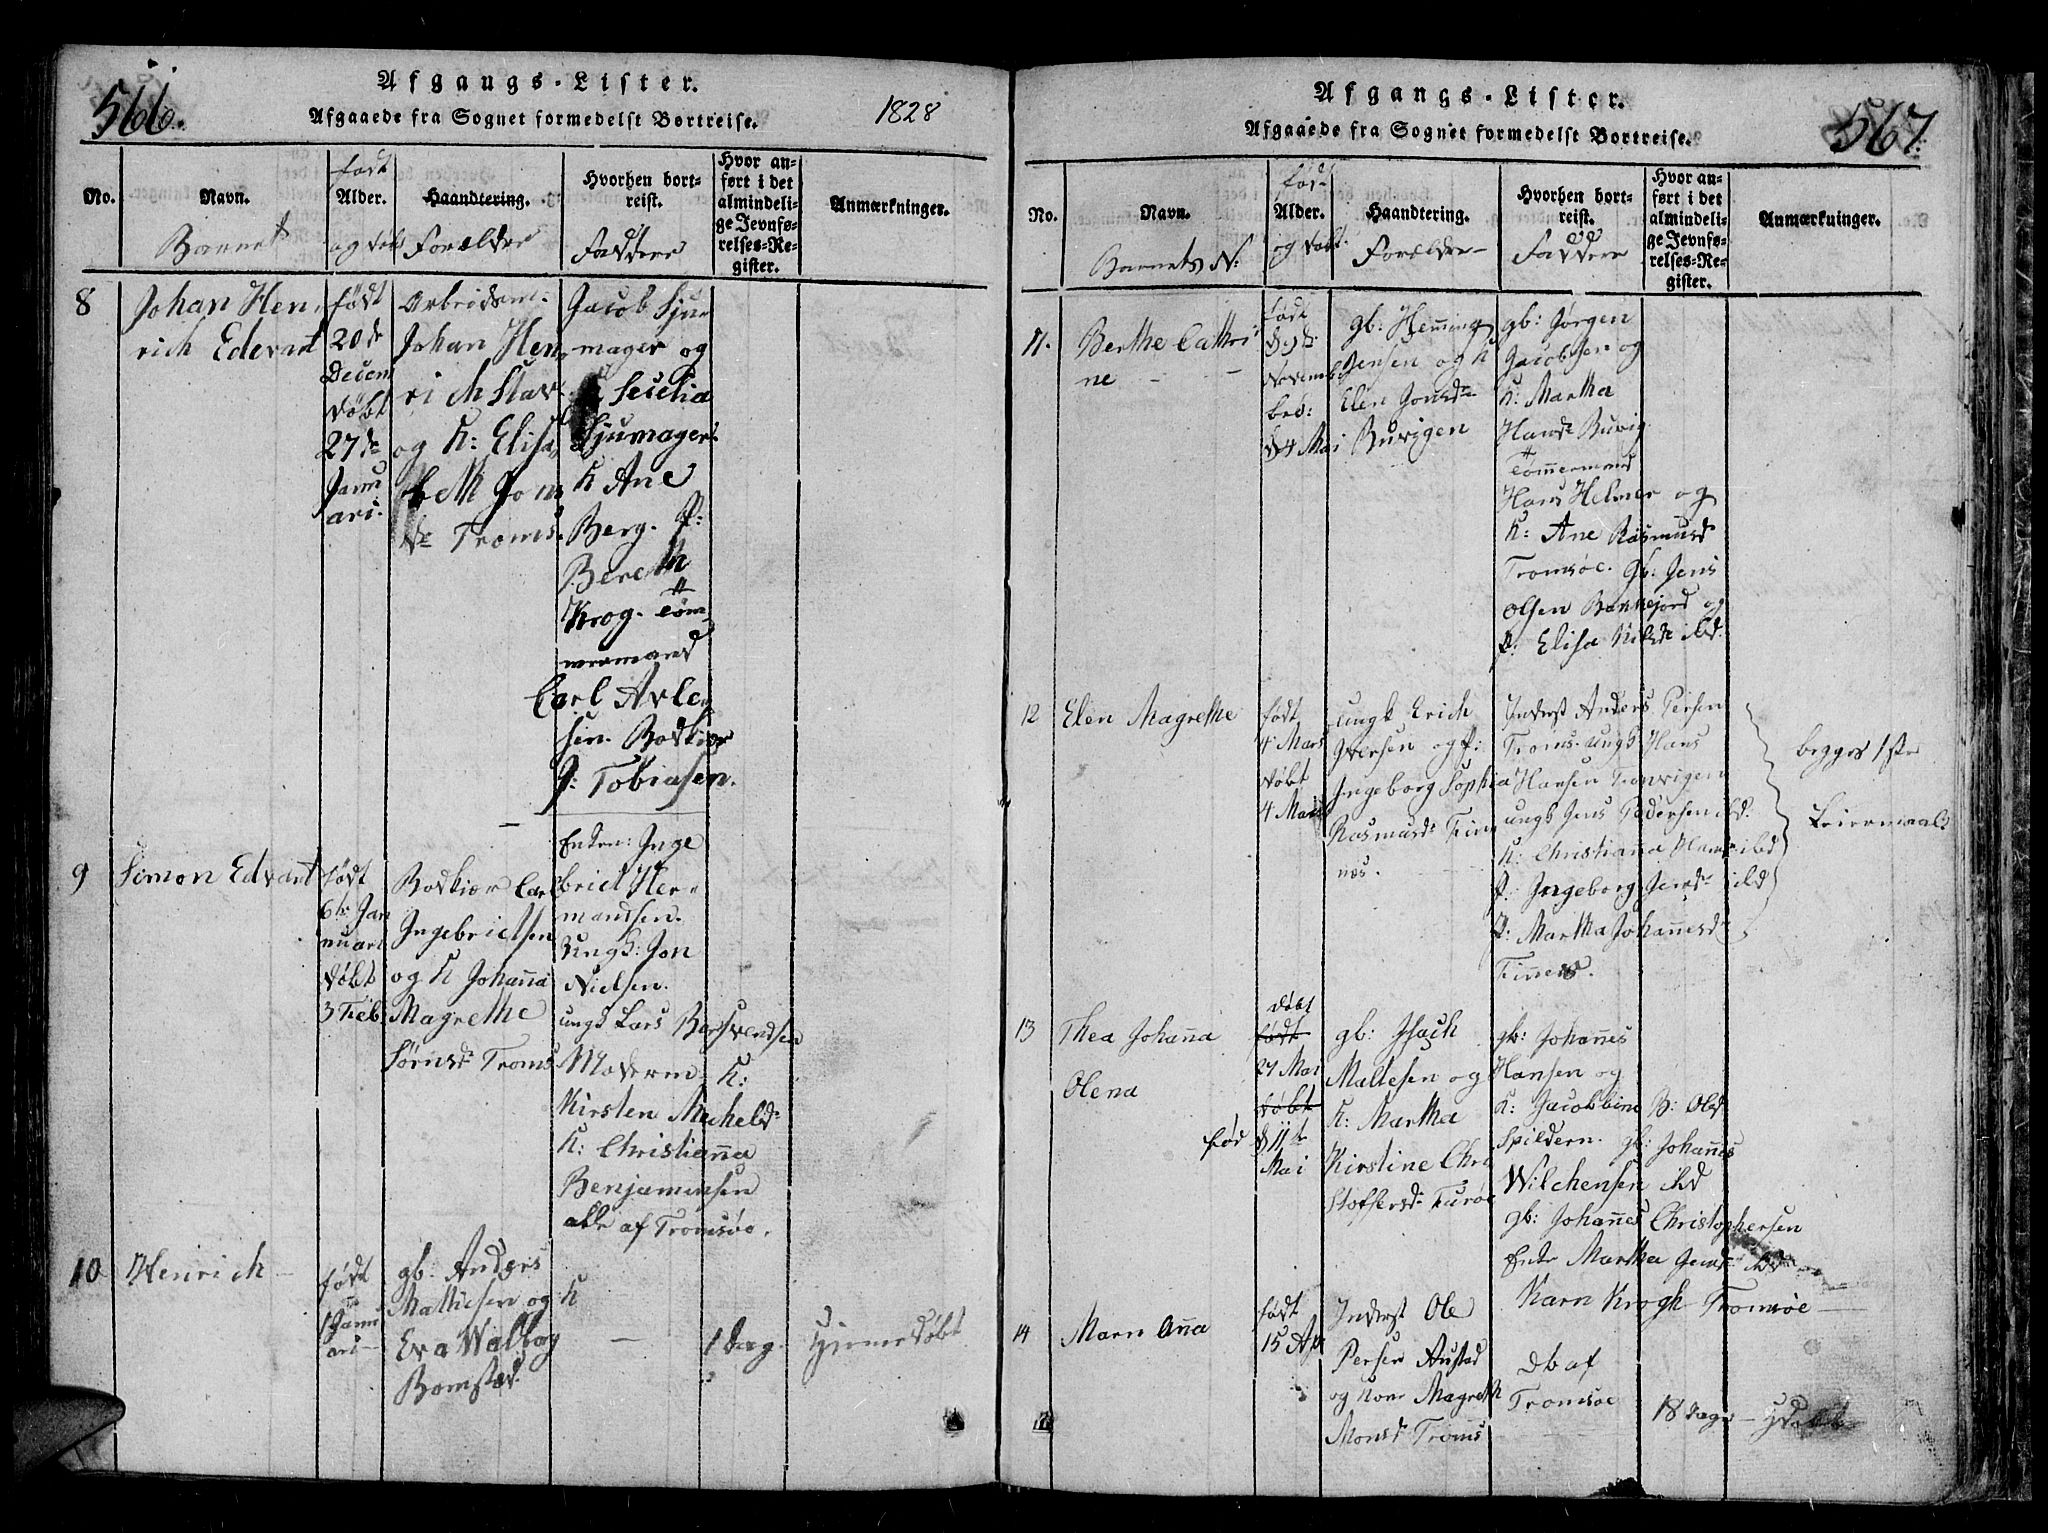 566.
Afgangs-Lister.
Afgaaede fra Sognet formedelst Bortreise.
1828
No.
Navn.
Barnet
født
Alder.
og døbt
Haandtering.
Forældre
Hvorhen bort-
reist.
Faddere
Hvor an-
ført i det
almindeli-
ge Jevnfø-
relses-Re-
gister.
Anmærkninger.
8
Johan Hen-
rich Edevart
født
20de
Decem
døbt
27de
Janu
ari.
Arbeidsm.
Johan Hen-
rich
og K: Elisa-
beth Jons
de Troms.
Jacob Sju-
mager og
Secelia
Sjumager.
K Ane
Berg. P:
Bereth
Krog. Tøm-
mermand
Carl
sen. Bødkier
P: Tobiasen.
9
Simon Edvart
født
6te Jan
nuari
døbt
3 Feb.
Bødkier Carl
Ingebrietsen
og K Johanna
Magrethe
Sørnsd. Troms
Enken: Inge
briet Her-
mandsen.
Ungk: Jon
Nielsen.
ungk Lars Berg Svendsen
Moderen K:
Kirsten Michelsd:
K: Christianna
Benjaminsen
alle af Tromsøe.
10
Henrich
født
1 Janu
ari
gb: Anders
Mathiesen og K
Eva Walborg
Bomstad
1 dag.
Hjemmedøbt
567.
Afgangs-Lister.
Afgaaede fra Sognet formedelst Bortreise.
No.
Navn.
Barnets N:
fød-
Alder.
og døbt.
Haandtering.
Forældre
Hvorhen bort-
reist.
Faddere
Hvor an-
ført i det
almindeli-
ge Jevnfø-
relses-Re-
gister.
Anmærkninger.
11.
Berthe Cathri
ne
født
Novemb
d 4 Mai
gb: Hemming
Jensen og K
Elen Jonsd:
Buvigen
gb: Jørgen
Jacobsen og
K: Martha
Hansd Buvig
Tømmermand
Hans Helmer og
K: Ane Rasmusd
Tromsøe. gb: Jens
Olsen Bakkejord og
P: Elisa Nilsd ibd.
12
Elen Magrethe
født
4 Mars
døbt
4 Mai
ungk Erich
Iversen og P:
Ingeborg Sophia
Rasmusd: Fin
næs.
Inderst Anders Persen
Troms. ungk Hans
Hansen
ungk Jens Pedersen ibd.
K: Christianna Hansd ibd
P: Ingeborg Jensd: ibd
P: Martha Johannesd:
Finnæs.
begges 1ste
Leiermaal.
13
Thea Johanna
Olena
døbt
født
27 Mai
døbt
fød
d 11te
Mai
gb: Isach
Maltesen og
K: Martha
Kirstine Chri
stoffersd: Turøe
gb: Johannes
Hansen og
K: Jacobbine B: Olsd
Spildern. gb: Johannes
Wilchensen ibd
gb: Johannes Christophersen
Enke Martha Jensd: ibd
Karn Krogh Tromsøe
14
Marn Anna
født
15 Ap
Inderst Ole
Persen Austad
og Kone Magreth
Monsd Troms
Tromsøe
18 dage